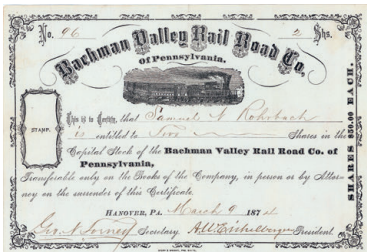 No. 96 2 Shs.
Bachman Valley Rail Road Co.
Of Pennsylvania.
STAMP.
This is to Certify, that Samuel N Rohrbach
is entitled to Two Shares in the
Capital Stock of the Bachman Valley Rail Road Co. of
Pennsylvania,
Transferable only on the Books of the Company, in person or by Attor-
ney on the surrender of this Certificate.
HANOVER, PA. March 9 187
Secretary President
SHARES $50.00 EACH.